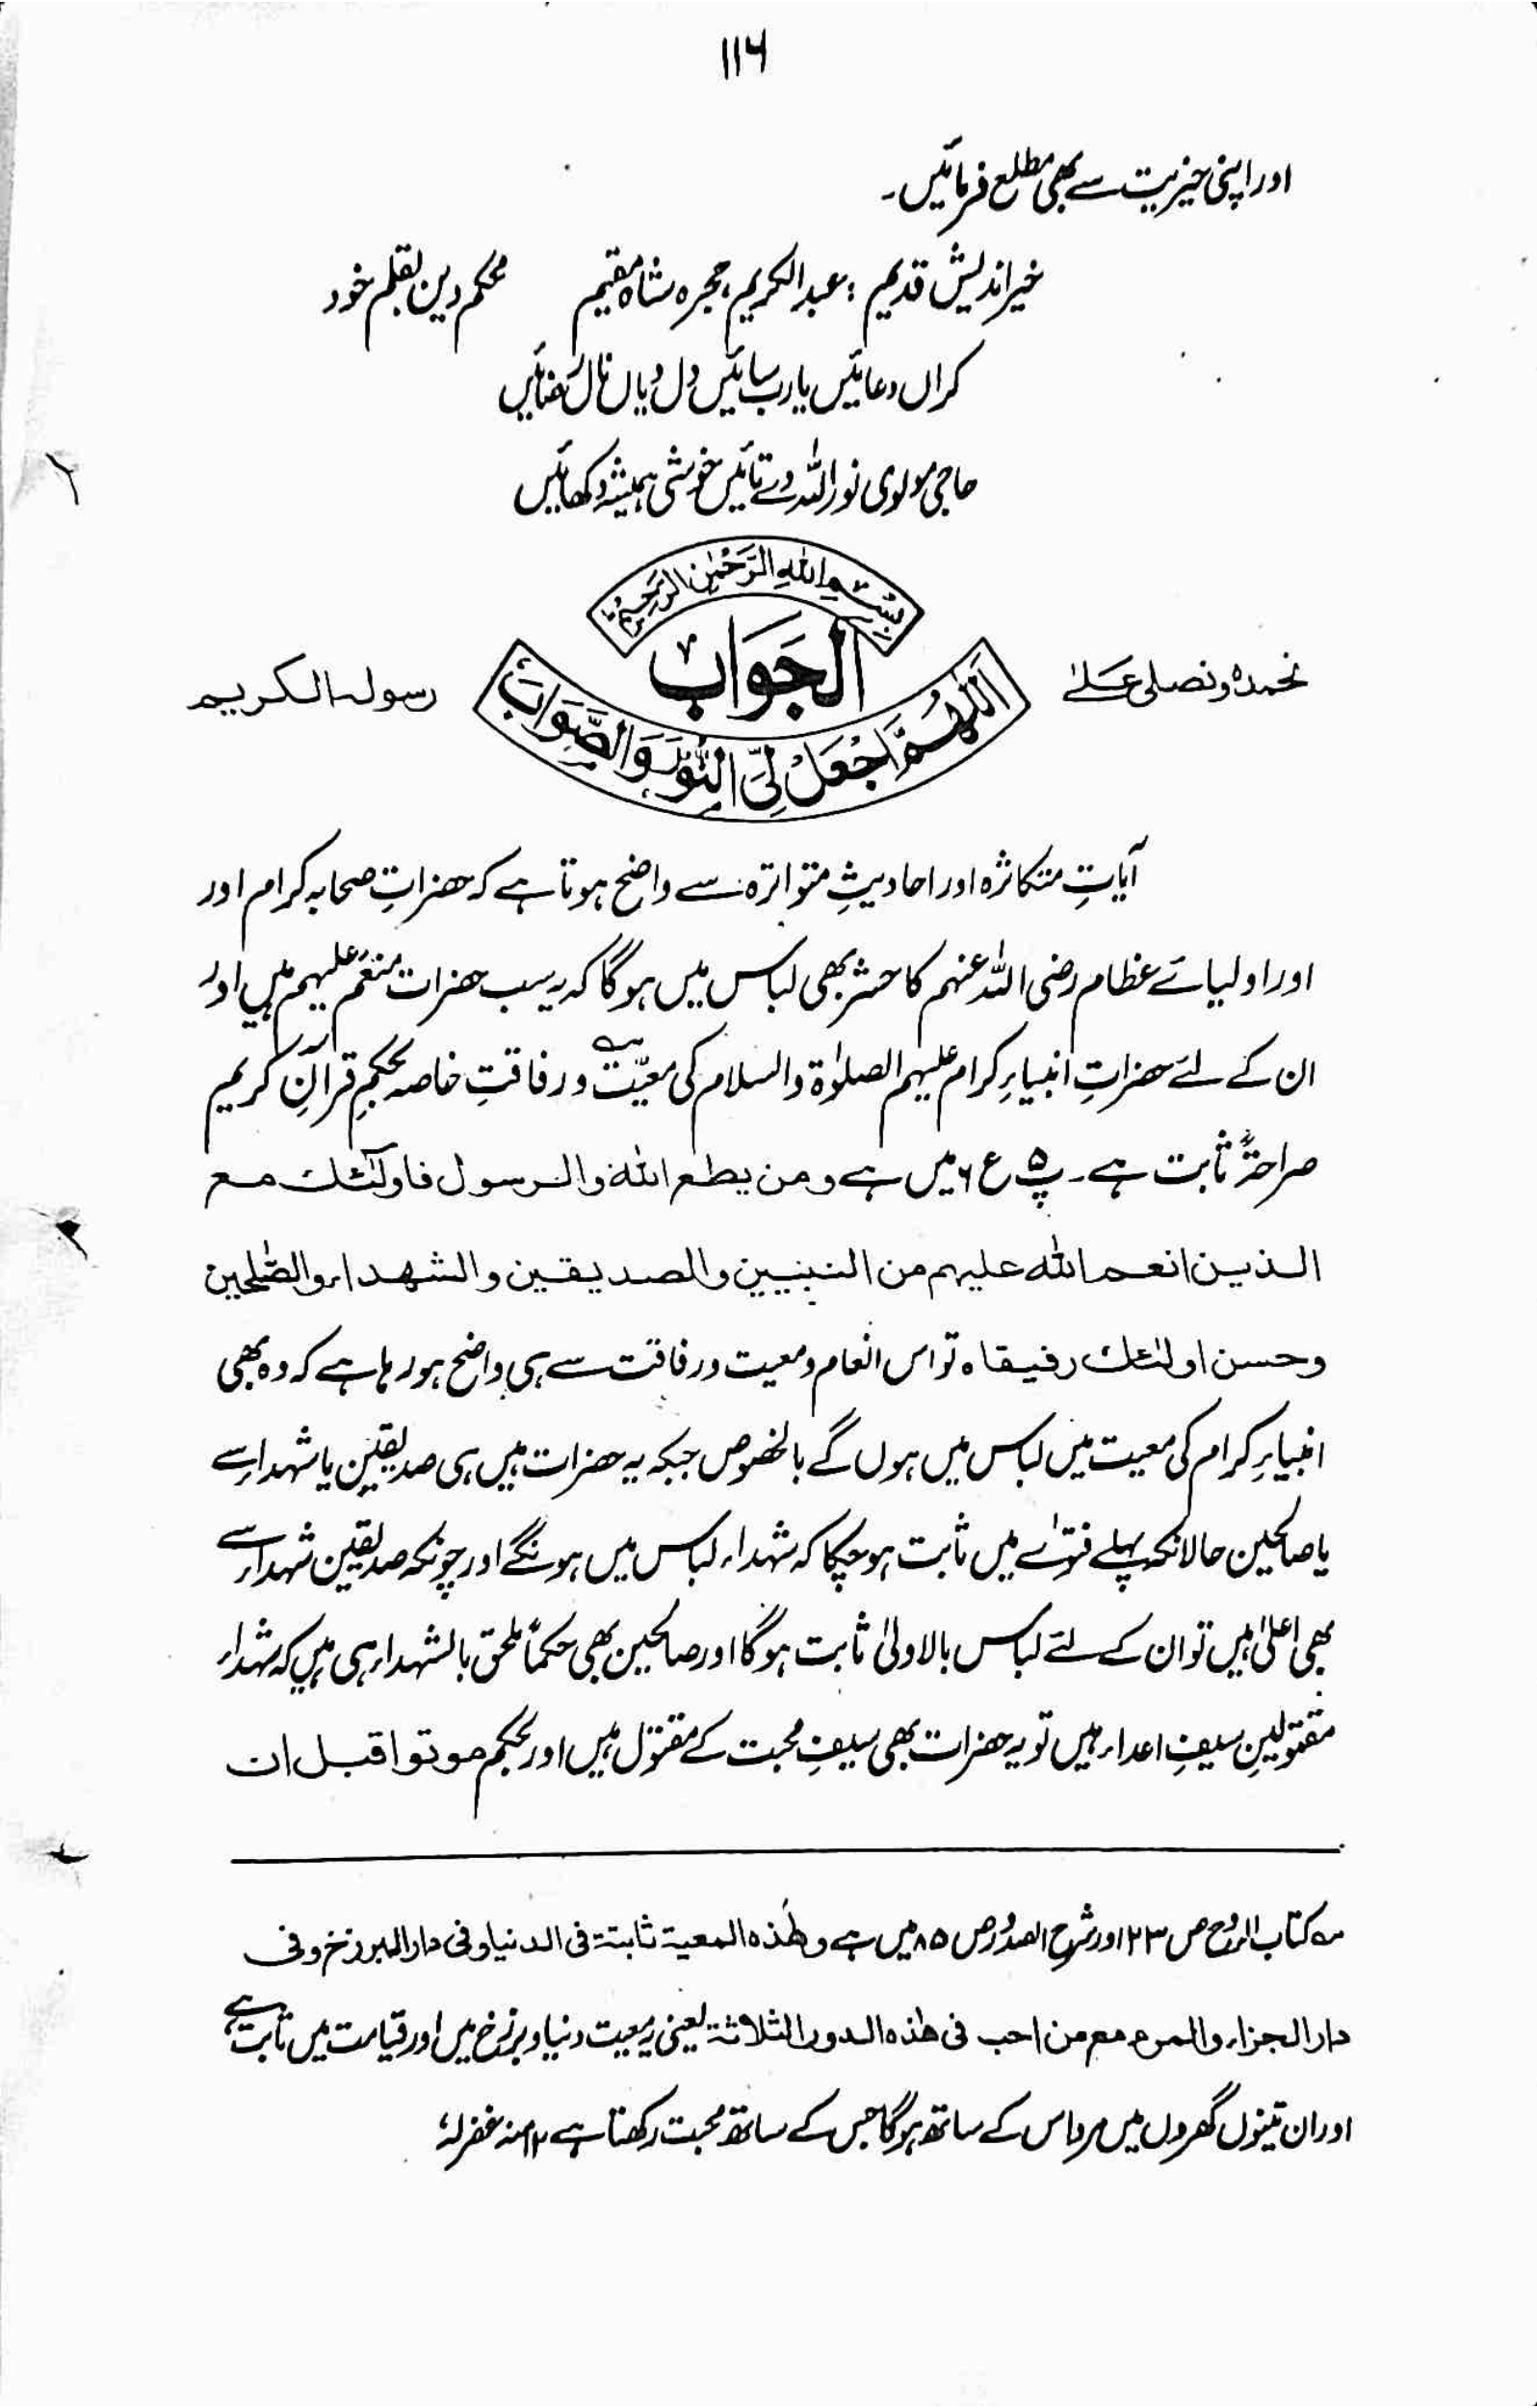 ۱۱۶
اور اپنی خیریت سے بھی مطلع فرمائیں۔
خیر اندیش قدیم : عبد الکریم، حجرہ شاہ مقیم محکم دین بقلم خود
کراں دعائیں یا رب سائیں دل دیاں نال
حاجی مولوی نور اللہ دے تائیں خوشی ہمیشہ دکھائیں
بِسْمِ اللهِ الرَّحْمٰنِ الرَّحِيْمِ
نحمده ونصلی علیٰ الجَوَابُ رسوله الکریم
اَللّٰهُمَّ اجْعَلْ لِیَ النُّوْرَ وَالصَّوَابَ
آیاتِ متکاثرہ اور احادیثِ متواترہ سے واضح ہوتا ہے کہ حضراتِ صحابہ کرام اور
اور اولیائے عظام رضی اللہ عنہم کا حشر بھی لباس میں ہوگا کہ یہ سب حضرات منعَم علیہم ہیں اور
ان کے لئے حضراتِ انبیاءِ کرام علیہم الصلوٰۃ والسلام کی معیّت و رفاقتِ خاصہ بحکمِ قرآنِ کریم
صراحۃً ثابت ہے۔ پ ۵ ع ۶ میں ہے ومن یطع الله والرسول فاولٰئك مع
الذین انعم الله علیہم من النبیین والصدیقین والشہداء والصّٰلحین
وحسن اولٰئك رفیقاہ تو اس انعام و معیت و رفاقت سے ہی واضح ہو رہا ہے کہ وہ بھی
انبیاءِ کرام کی معیت میں لباس میں ہوں گے بالخصوص جبکہ یہ حضرات ہیں ہی صدیقین یا شہداء سے
یا صالحین حالانکہ پہلے فتوٰے میں ثابت ہو چکا کہ شہداء لباس میں ہونگے اور چونکہ صدیقین شہداء سے
بھی اعلیٰ ہیں تو ان کے لئے لباس بالاولیٰ ثابت ہوگا اور صالحین بھی حکماً ملحق بالشہداء ہی ہیں کہ شہداء
مقتولینِ سیفِ اعداء ہیں تو یہ حضرات بھی سیفِ محبت کے مقتول ہیں اور بحکم موتوا قبل ان
سہ کتاب الروح ص ۲۳ اور شرح الصدور ص ۸۵ میں ہے وهٰذه المعیة ثابتة فی الدنیا وفی دار البرزخ وفی
دار الجزاء والمرء مع من احب فی هٰذه الدور الثلاثة یعنی یہ معیت دنیا و برزخ میں اور قیامت میں ثابت ہے
اور ان تینوں گھروں میں مرد اس کے ساتھ ہوگا جس کے ساتھ محبت رکھتا ہے ۱۲ منہ غفرلہٗ